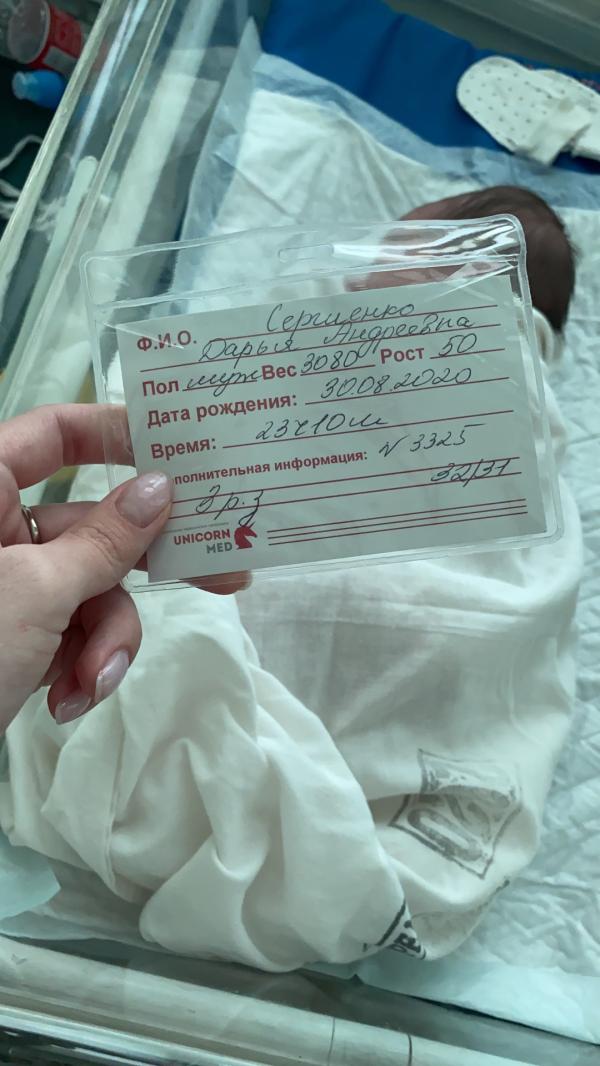 Ф.И.О. Сергиенко
Дарья Андреевна
Пол муж Вес 3080 Рост 50
Дата рождения: 30.08.2020
Время: 23ч10м
ополнительная информация: N 3325
32/31
UNICORN
MED